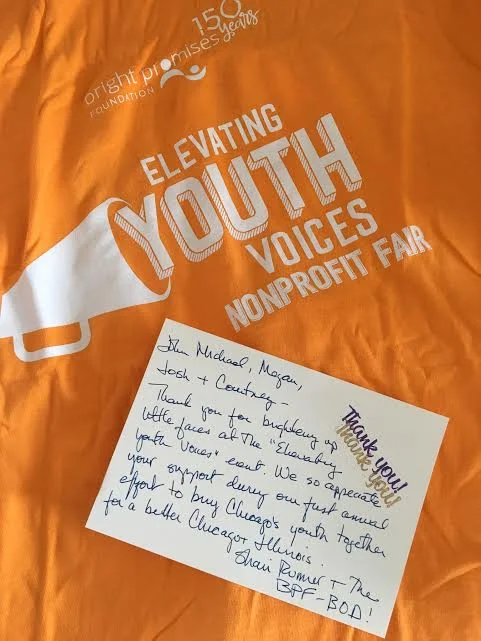 150
Years
bright promises
FOUNDATION
ELEVATING
YOUTH
VOICES
NONPROFIT FAIR
John Michael, Megan,
Josh + Courtney -
Thank you for brightening up
little faces at The "Elevating
Youth Voices" event. We so appreciate
your support during our first annual
effort to bring Chicago's youth together
for a better Chicago + Illinois.
Shari Runner + The
BPF-BOD!
Thank you!
Thank you!